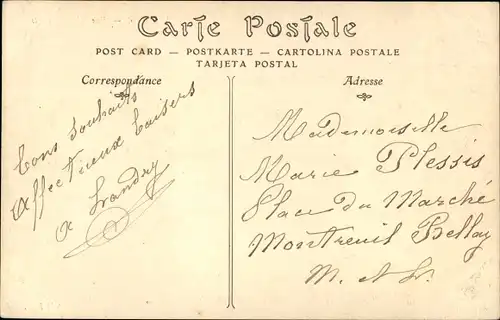 Carte Postale
POST CARD — POSTKARTE — CARTOLINA POSTALE
TARJETA POSTAL
Correspondance
Bons Souhaits
Affectieux baisers
A Landry
Adresse
Mademoiselle
Marie Plessis
Place du Marché
Montreuil Bellay
M. et L.